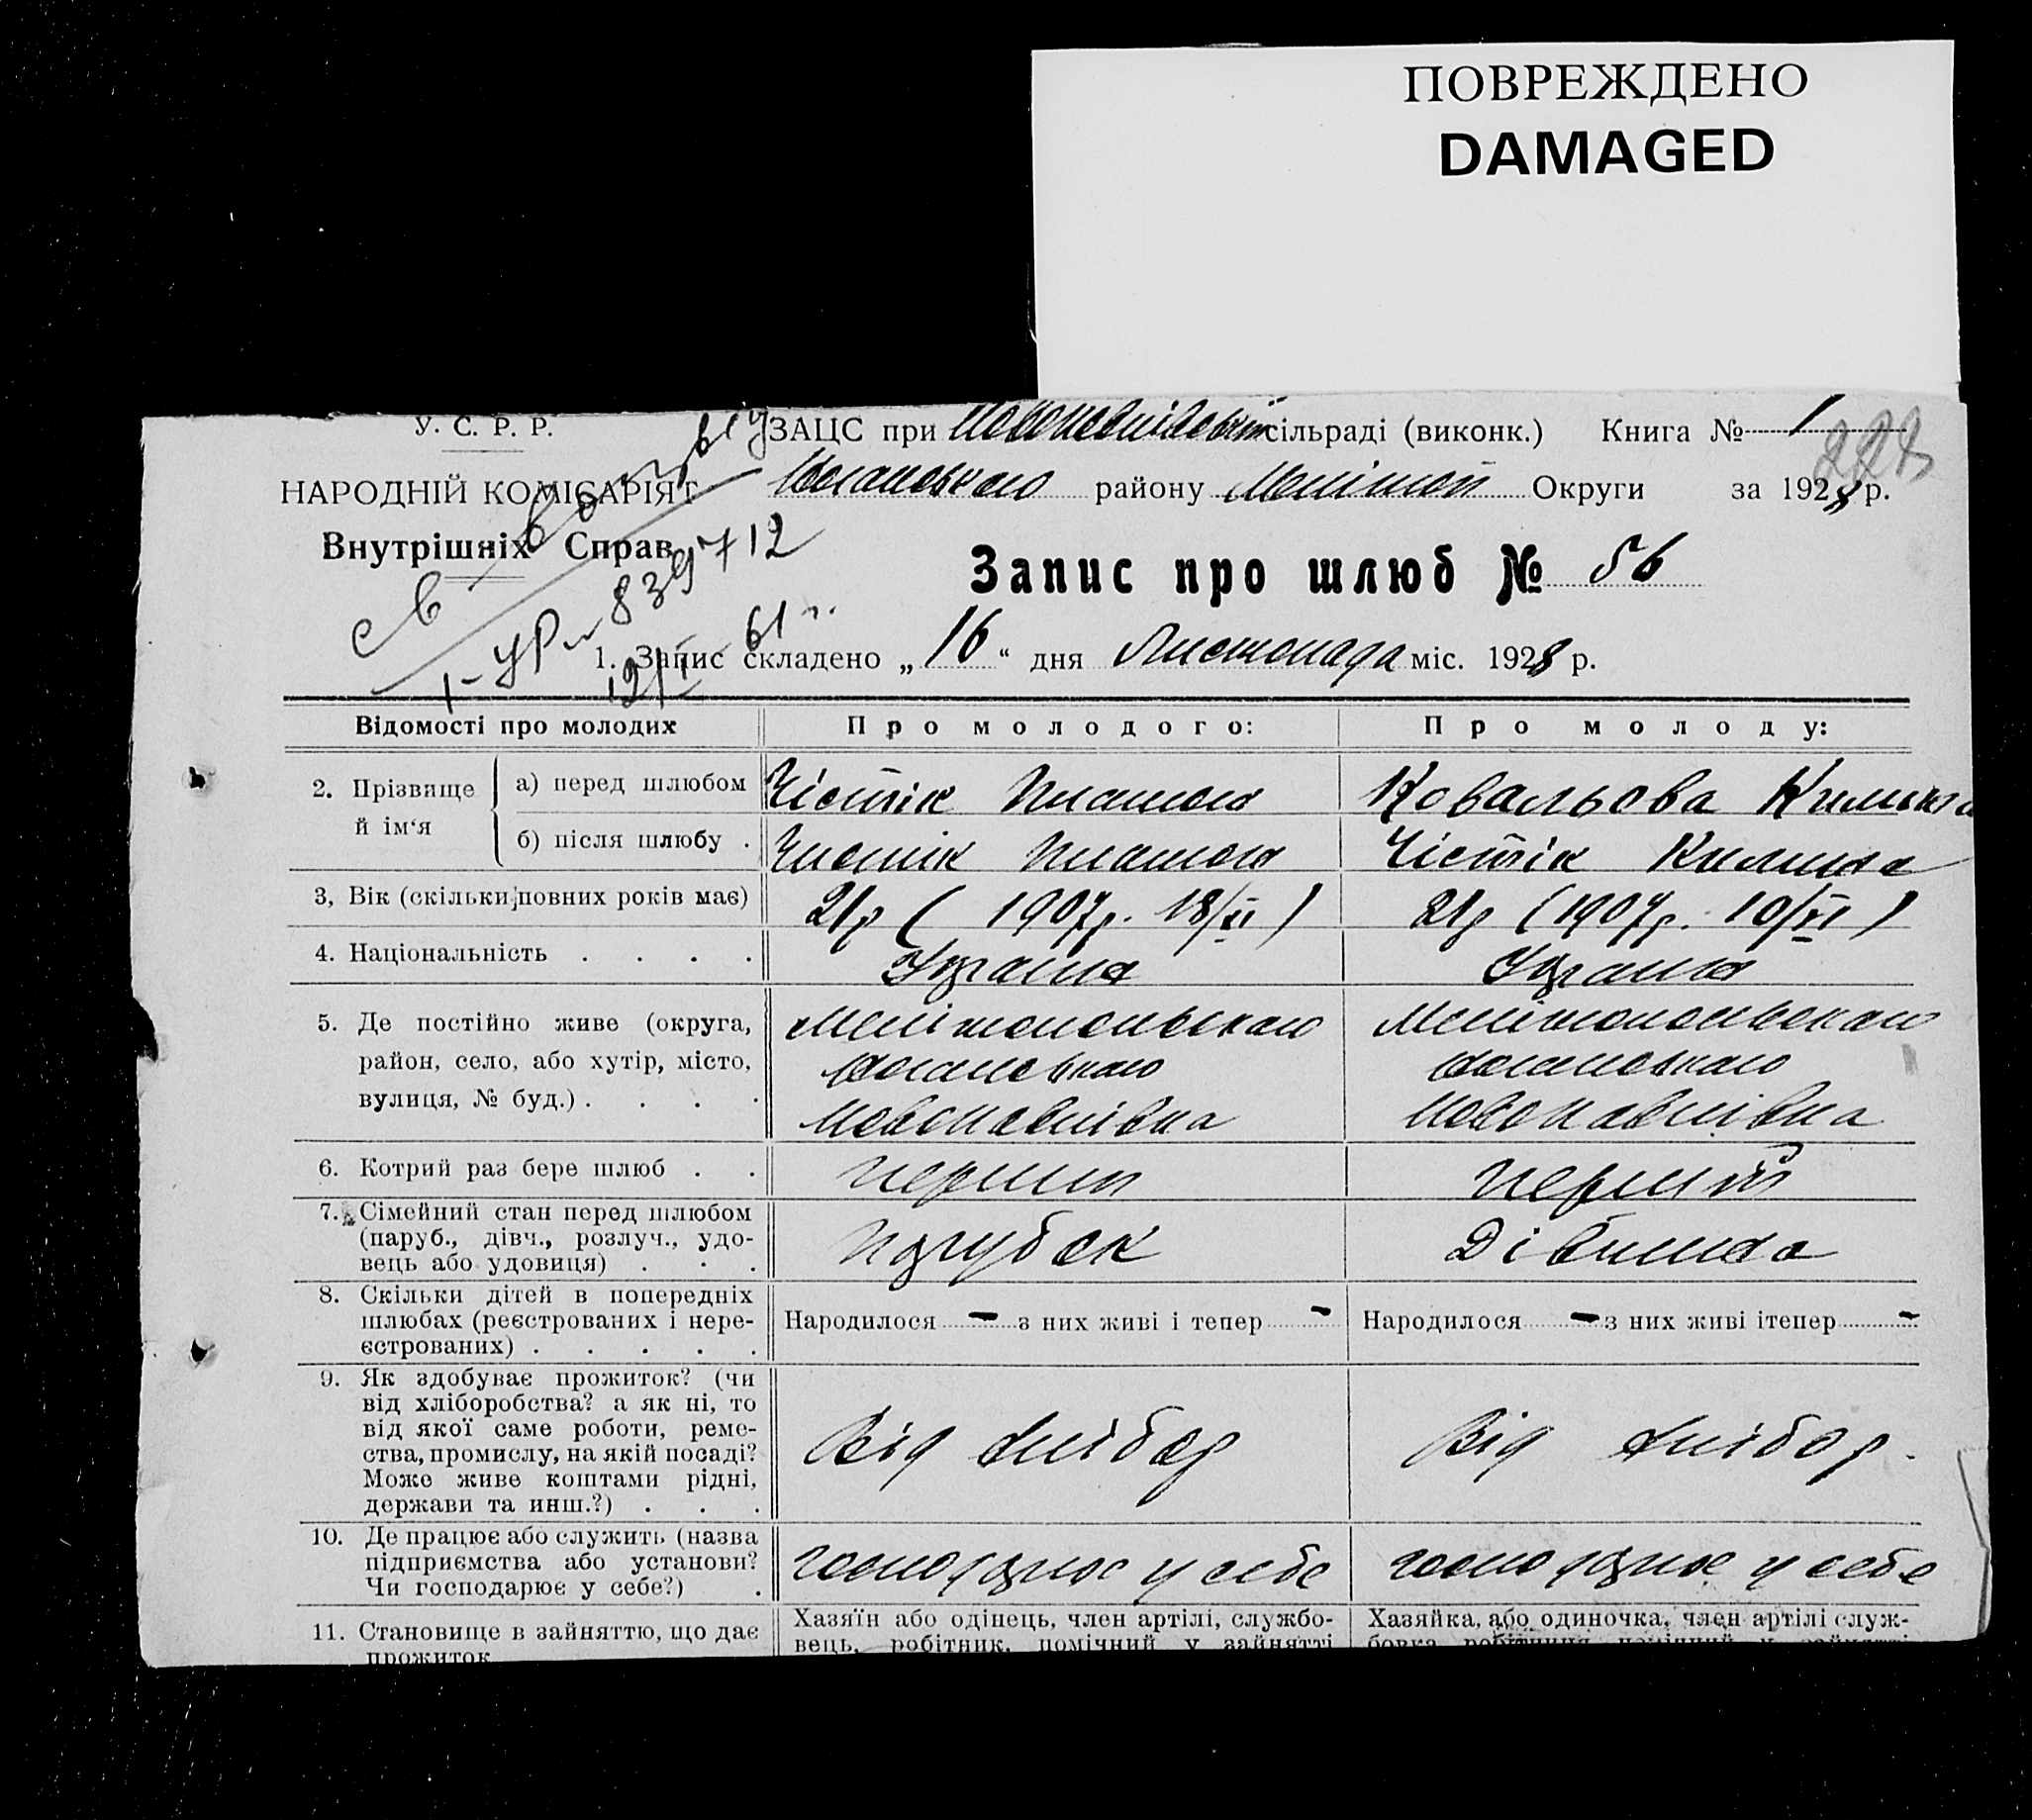 ПОВРЕЖДЕНО
DAMAGED
У. С. Р. Р.
ЗАЦС при Новопавлівській сільраді (виконк.) Книга № 1
228
НАРОДНІЙ КОМІСАРІЯТ
району Мелітоп Округи за 1928 р.
Внутрішніх Справ
Запис про шлюб № 56
св
1-УР № 839712
61 г.
1. Запис складено „16“ дня Листопада міс. 1928 р.
Відомості про молодих Про молодого: Про молоду:
2. Прізвище й ім‘я
а) перед шлюбом Чістік Платон Ковальова Килина
б) після шлюбу . Чистік Платон Чістік Килина
3, Вік (скільки повних років має) 21р ( 1907р. 18/XI ) 21р (1907р. 10/VI )
4. Національність . . . . Україн Україн
5. Де постійно живе (округа, Мелітопольского Мелітопольского
район, село, або хутір, місто,
вулиця, № буд.) . . . . Новопавлівка Новопавлівка
6. Котрий раз бере шлюб . . перший перший
7. Сімейний стан перед шлюбом
(паруб., дівч., розлуч., удо-
вець або удовиця) . . . Парубок Дівчина
8. Скільки дітей в попередніх
шлюбах (реєстрованих і нере-
єстрованих) . . . . .
Народилося - з них живі і тепер - Народилося - з них живі ітепер -
9. Як здобуває прожиток? (чи
від хліборобства? а як ні, то
від якої саме роботи, реме-
ства, промислу, на якій посаді?
Може живе коштами рідні,
держави та инш.?) . . .
Від хлібор Від хлібор.
10. Де працює або служить (назва
підприємства або установи?
Чи господарює у себе?) .
господарює у себе господарює у себе
11. Становище в зайняттю, що дає
прожиток
Хазяїн або одінець, член артілі, службо-
вець, робітник, помічний у зайнятті
Хазяйка, або одиночка, член артілі служ-
бовка робітниця помічний у зайнятті